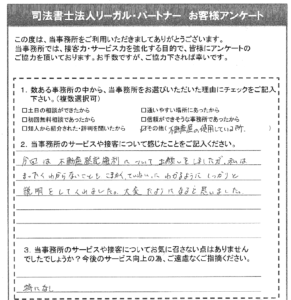 司法書士法人リーガル・パートナー お客様アンケート
この度は、当事務所をご利用いただきましてありがとうございます。
当事務所では、接客力・サービス力を強化する目的で、皆様にアンケートの
ご協力を頂いております。お手数ですが、ご協力下されば幸いです。
1. 数ある事務所の中から、当事務所をお選びいただいた理由にチェックをご記入
下さい。(複数選択可)
□土日の相談ができたから □通いやすい場所にあったから
□初回無料相談であったから □信頼ができそうな事務所であったから
□知人から紹介された・評判を聞いたから その他( 不動産屋の使用している所 )
2. 当事務所のサービスや接客について感じたことをご記入ください。
今回は不動産登記権利についてお願いをしましたが、私は
まったくわからないことも わかるように しっかりと
説明をしてくれました。大変たよりになると思いました。
3. 当事務所のサービスや接客についてお気に召さない点はありません
でしたでしょうか?今後のサービス向上の為、ご遠慮なくご指摘ください。
特になし